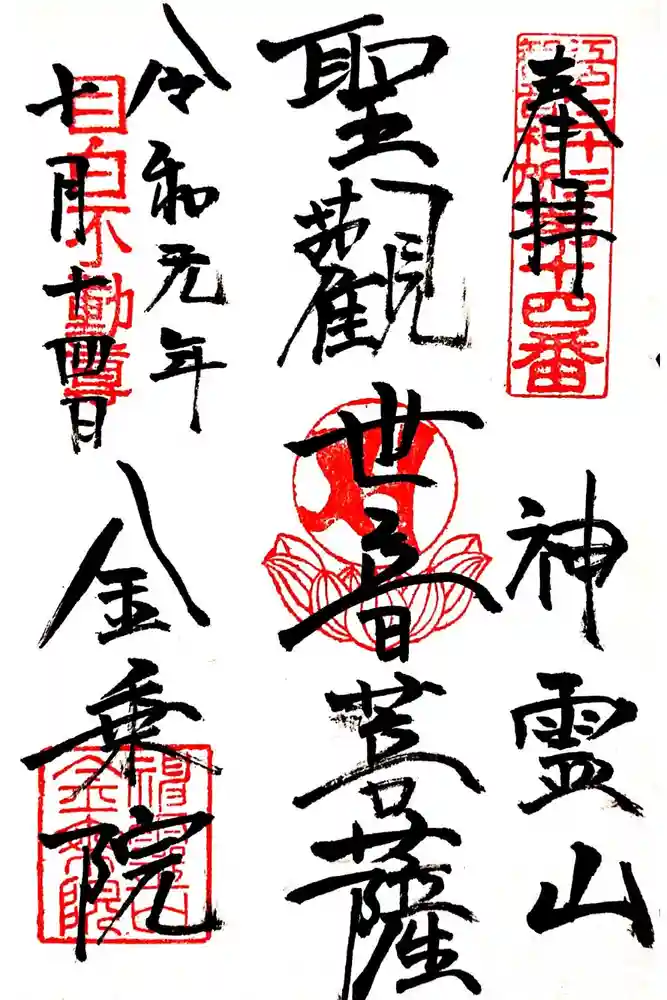 奉拝
神霊山
江戸三十三観音札所第十四番
聖觀世音菩薩
令和元年
十月十四日
目白不動尊
金乗院
神霊山金乗院